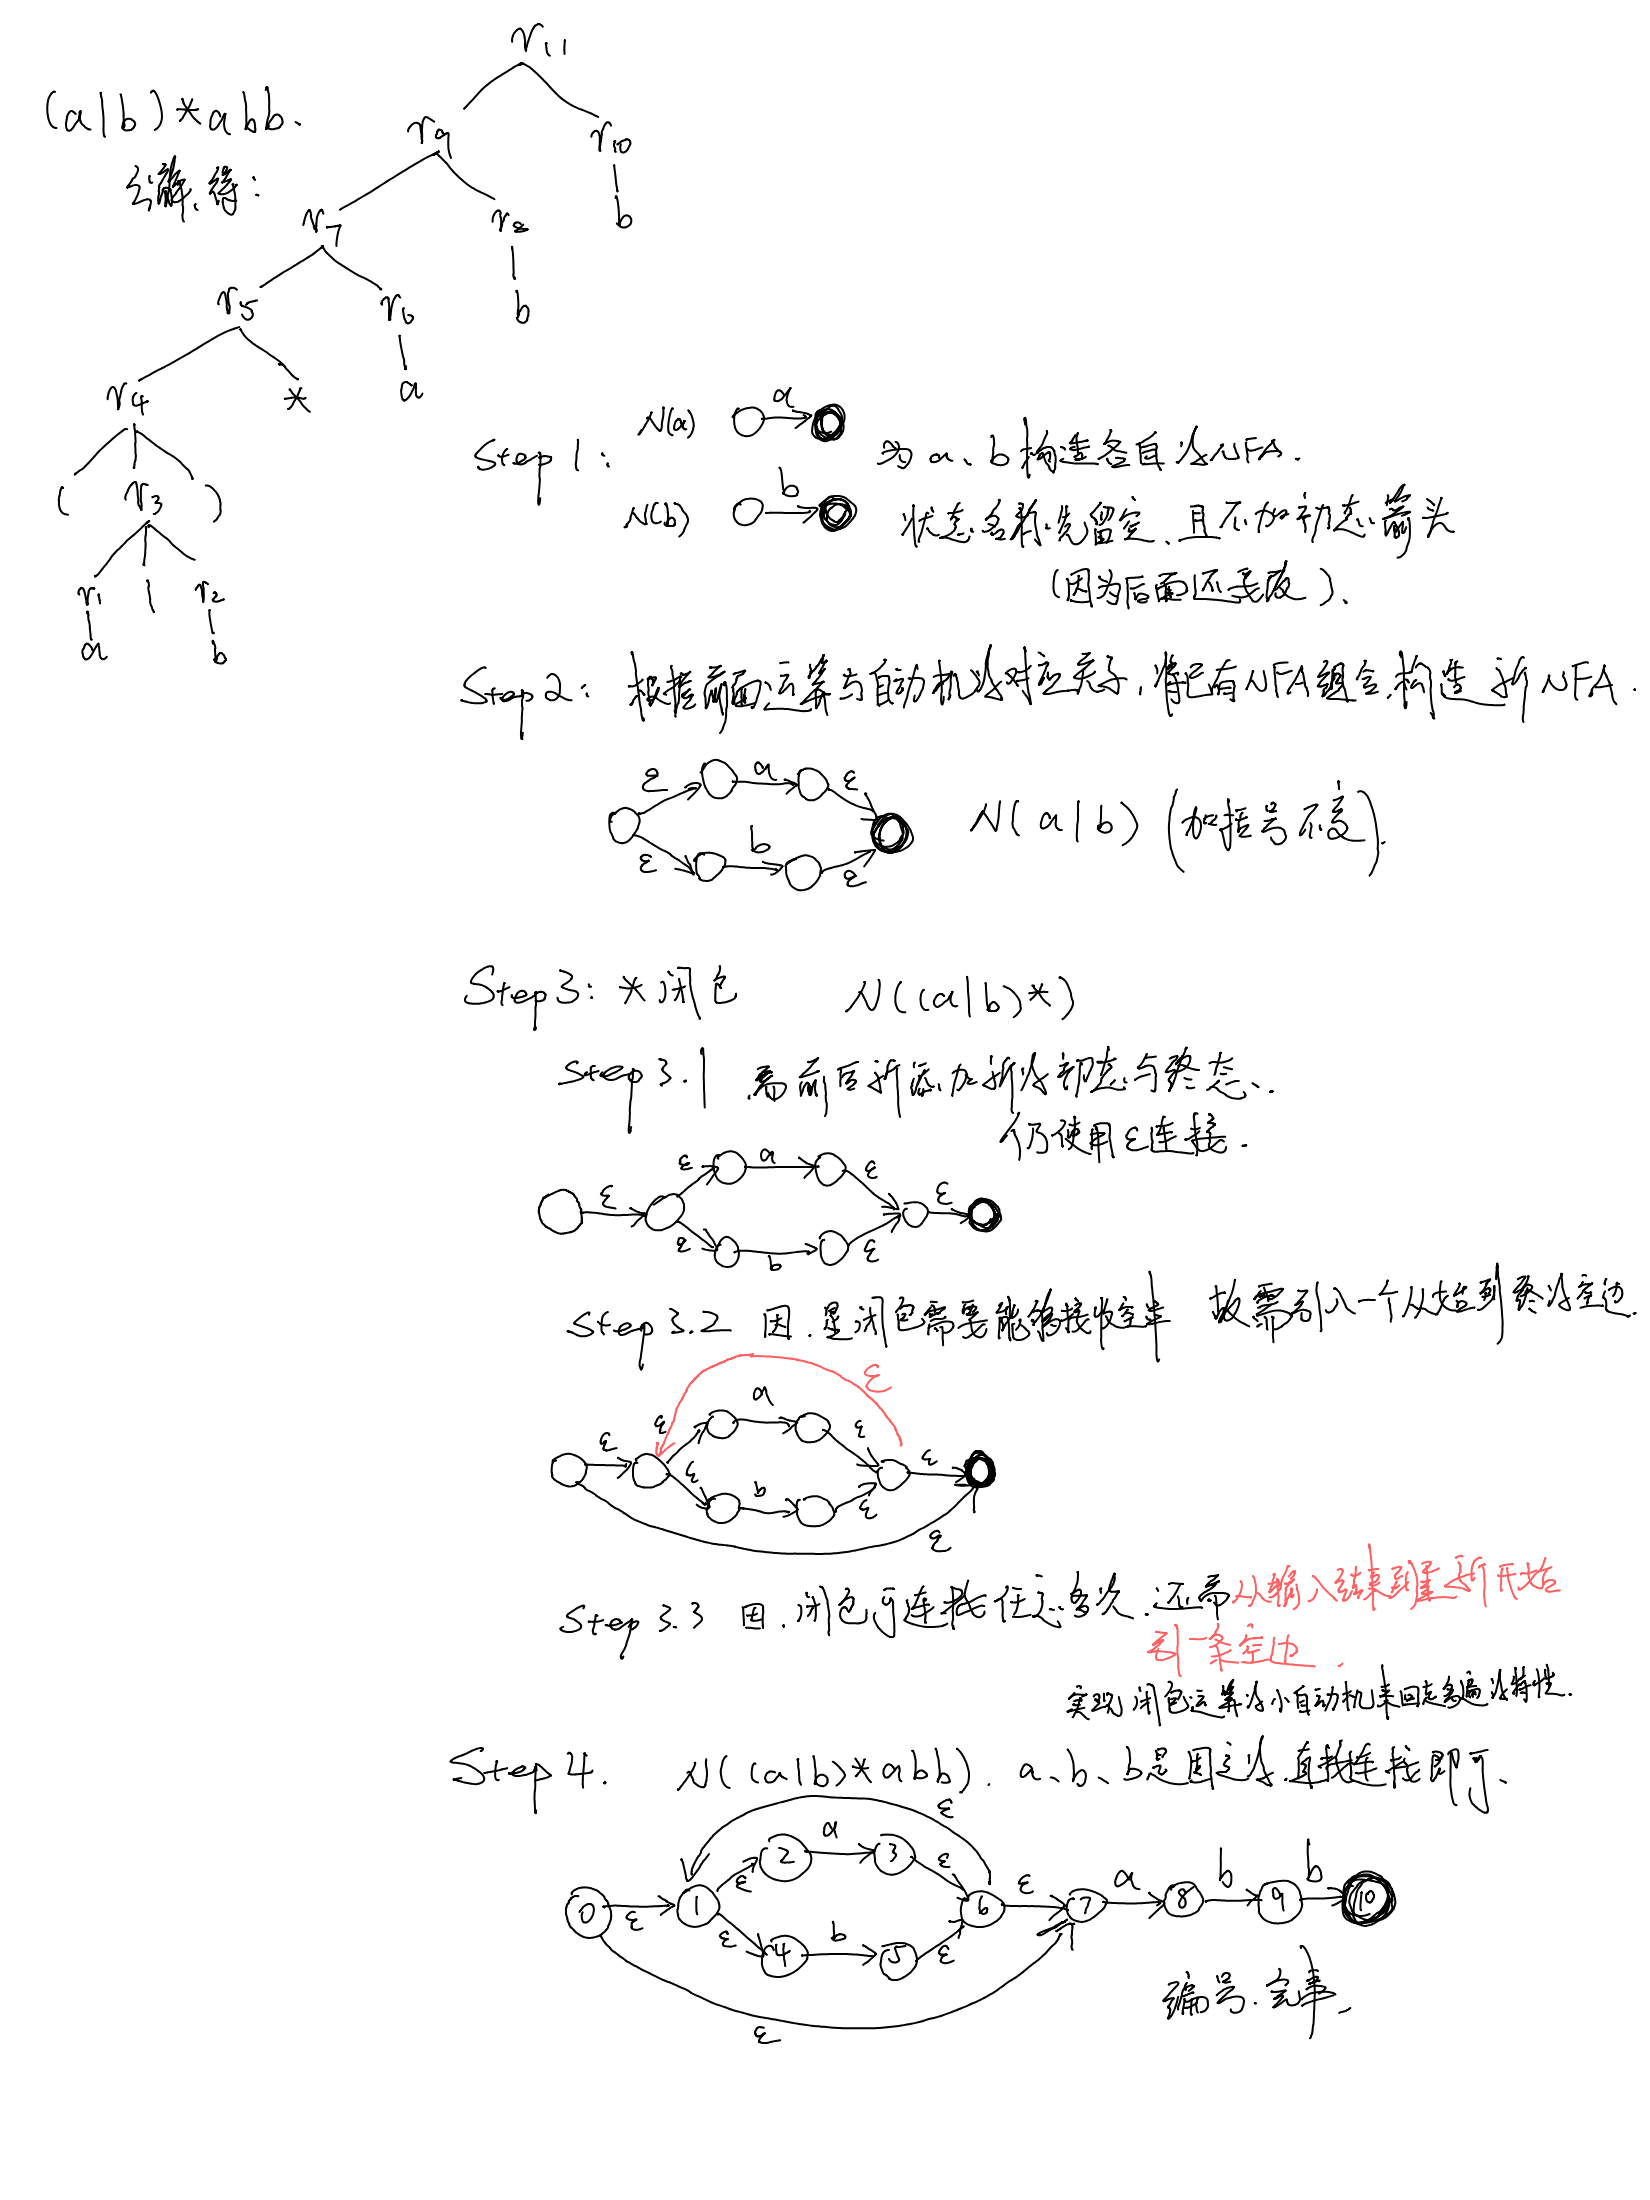 (a|b)*abb.
分解,得:
r₁₁
r₉ r₁₀
r₇ r₈ b
r₅ r₆ b
r₄ * a
( r₃ )
r₁ | r₂
a b
Step 1: N(a) a 为a、b构造各自的NFA.
N(b) b 状态名称先留空、且不加初态箭头
(因为后面还要改)、
Step 2: 根据前面运算与自动机的对应关系,将已有NFA组合,构造新NFA.
ε a ε
ε b ε
N(a|b) (加括号不变).
Step 3: *闭包 N((a|b)*)
Step 3.1 需前后新添加新的初态与终态、.
仍使用ε连接.
ε ε a ε ε
ε b ε
Step 3.2 因.是闭包需要能够接收空串 故需引入一个从始到终的空边.
ε
ε ε a ε ε
ε b ε
ε
Step 3.3 因.闭包可连接任意多次.还需从输入结束到重新开始
引一条空边.
实现闭包运算的小自动机来回走多遍的特性.
Step 4. N((a|b)*abb). a、b、b是固定的.直接连接即可、
ε
a
0 ε 1 ε 2 3 ε 6 ε 7 a 8 b 9 b 10
ε 4 b 5 ε
ε
编号.完事、